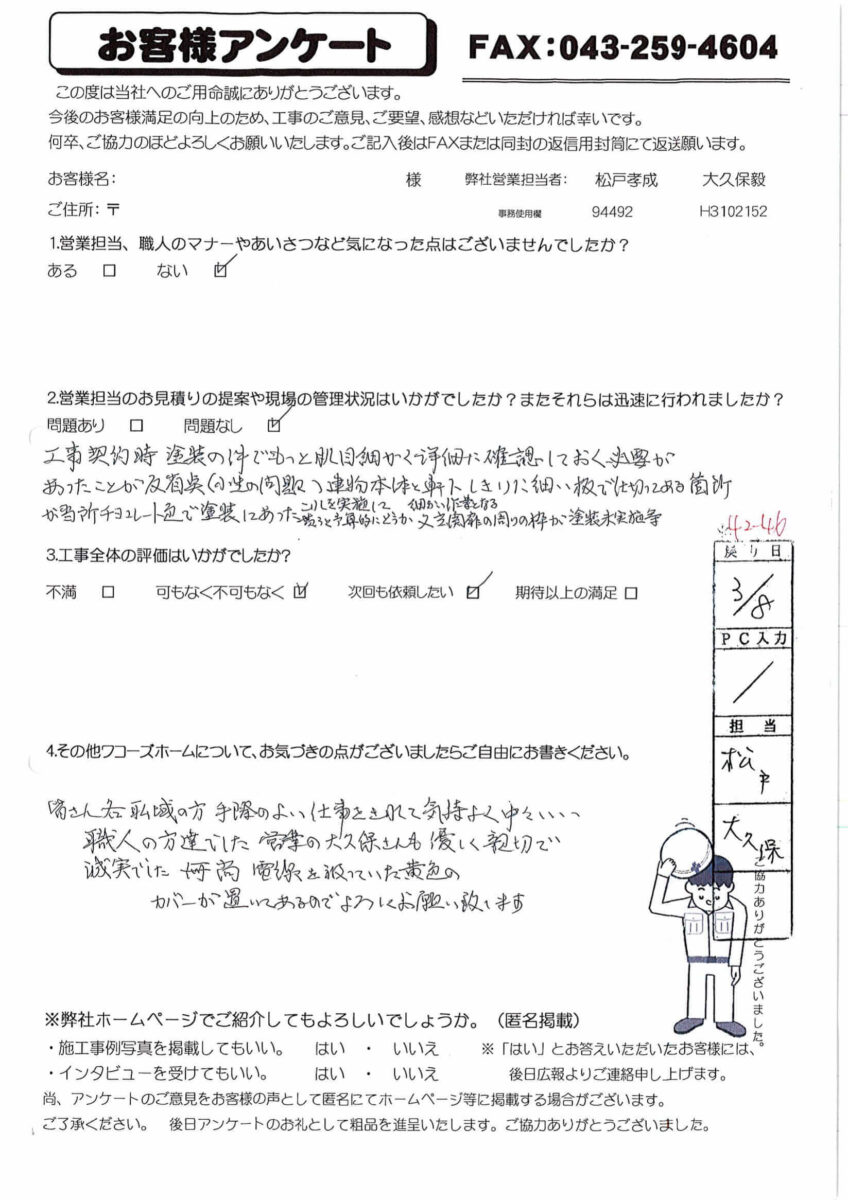 お客様アンケート
FAX:043-259-4604
この度は当社へのご用命誠にありがとうございます。
今後のお客様満足の向上のため、工事のご意見、ご要望、感想などいただければ幸いです。
何卒、ご協力のほどよろしくお願いいたします。ご記入後はFAXまたは同封の返信用封筒にて返送願います。
お客様名: 様 弊社営業担当者: 松戸孝成 大久保毅
ご住所:〒 事務使用欄 94492 H3102152
1.営業担当、職人のマナーやあいさつなど気になった点はございませんでしたか?
ある □ ない ☑
2.営業担当のお見積りの提案や現場の管理状況はいかがでしたか?またそれらは迅速に行われましたか?
問題あり □ 問題なし ☑
工事契約時 塗装の件でもっと肌目細かく詳細に確認しておく必要が
あったことが反省点(小生の問題)建物本体と軒下しきりに細い板で仕切ってある箇所
が当所チョコレート色で塗装にあった これを実施して 細かい作業となる
と予算的にどうか 玄関廻りの周りの枠が塗装未実施等
3.工事全体の評価はいかがでしたか?
不満 □ 可もなく不可もなく ☑ 次回も依頼したい ☑ 期待以上の満足 □
42-46
戻り日
3/8
PC入力
/
担当
松戸
大久保
4.その他ワコーズホームについて、お気づきの点がございましたらご自由にお書きください。
皆さん各 の方 手際のよい仕事をされて気持よく中々いい
職人の方達でした 営業の大久保さんも優しく親切で
誠実でした 尚 電線を被っていた黄色の
カバーが置いてあるのでよろしくお願い致します
ご協力ありがとうございました。
※弊社ホームページでご紹介してもよろしいでしょうか。(匿名掲載)
・施工事例写真を掲載してもいい。 はい ・ いいえ ※「はい」とお答えいただいたお客様には、
・インタビューを受けてもいい。 はい ・ いいえ 後日広報よりご連絡申し上げます。
尚、アンケートのご意見をお客様の声として匿名にてホームページ等に掲載する場合がございます。
ご了承ください。 後日アンケートのお礼として粗品を進呈いたします。ご協力ありがとうございました。